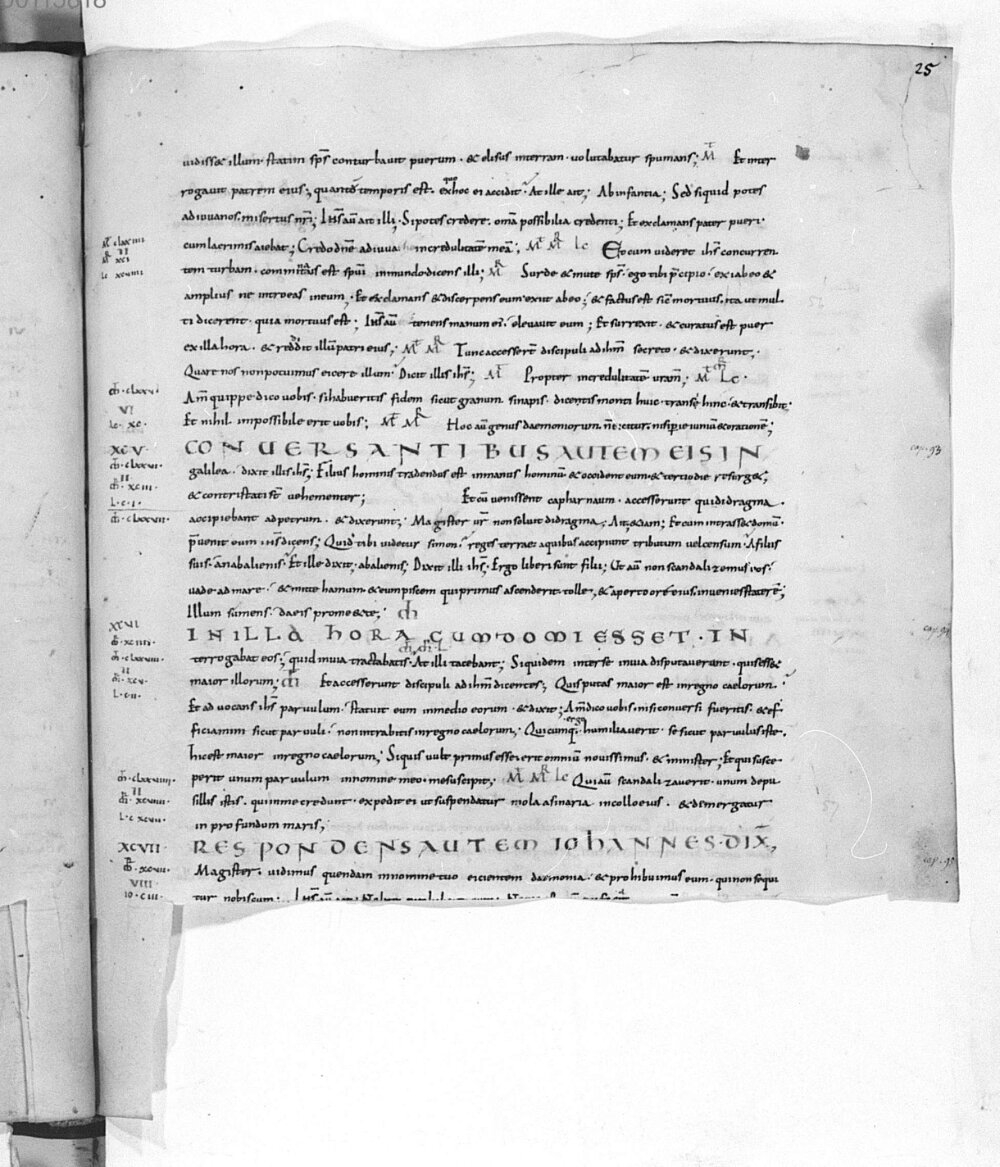 25
uidisset illum· statim sp̄s conturbauit puerum· & elisus interram· uolutabatur spumans; M̄ Et inter
rogauit patrem eius; quantū temporis est· exhoc ei accidit· At ille ait; Abinfantia; Sed siquid potes
adiuuanos· misertus nr̄i; Ih̄s aū ait illi; Sipotes credere· om̄a possibilia credenti; Et exclamans pater pueri·
cumlacrimis aiebat; Credo dn̄e adiuua incredulitatē meā; Mt̄ MR̄ Lc Et cum uideret ih̄s concurren
tem turbam· comminatus est spūi inmundo dicens illi; MR̄ Surde & mute sp̄s· ego tibi p̄cipio· exiabeo &
amplius ne introeas ineum; Et exclamans & discerpens eum exiit abeo; & factus est sic̄ mortuus· ita ut mul
ti dicerent· quia mortuus est; Ih̄s aū tenens manum ei· eleuauit eum; Et surrexit· & curatus est puer
exilla hora· & reddidit illū patri eius; Mt̄ MR̄ Tunc accesserūt discipuli ad ih̄m secreto· & dixerunt;
Quare nos nonpotuimus eicere illum· Dicit illis ih̄s; Mt̄ Propter incredulitatē uram̄; Mt̄ Lc·
Am̄ quippe dico uobis· sihabueritis fidem sicut granum sinapis· dicentis monti huic· transi hinc· & transibit·
Et nihil impossibile erit uobis; Mt̄ MR̄ Hoc aū genus daemoniorum n̄ eicitur· nisi per ieiuniū & orationē;
XCV CONUERSANTIBUS AUTEM EIS IN
galilea· dixit illis ih̄s; Filius hominis tradendus est inmanus hominū & occident eum· & tertio die resurg&;
& contristati st̄ uehementer; Et cū uenissent capharnaum· accesserunt qui didragma
accipiebant ad petrum· & dixerunt; Magister ur̄ non soluit didragma; Ait· etiam; Et cum intrass& domū·
p̄uenit eum ih̄s dicens; Quid tibi uidetur simon· reges terrae aquibus accipiunt tributum uel censum· Afiliis
suis· an abalienis· Et ille dixit· abalienis; Dixit illi ih̄s; Ergo liberi sunt filii; Ut aū non scandalizemus eos·
uade ad mare· & mitte hamum· & eum piscem qui primus ascenderit· tolle· & aperto ore eius· inuenies staterē;
Illum sumens· da eis pro me & te;
XCVI INILLA HORA CUM DOMI ESSET· IN
terrogabat eos; quid inuia tractabatis· At illi tacebant; Siquidem interse inuia disputauerunt· quis ess&
maior illorum; Et accesserunt discipuli ad ih̄m dicentes; Quis putas maior est inregno caelorum·
Et aduocans ih̄s paruulum· statuit eum inmedio eorum· & dixit; Am̄ dico uobis· nisi conuersi fueritis· & ef
ficiamini sicut paruuli· nonintrabitis inregno caelorum; Quicumq· ergo humiliauerit· se sicut paruulus iste·
hic est maior inregno caelorum; Siquis uult primus esse· erit omniū nouissimus· & minister; Et qui susce
perit unum paruulum innomine meo· me suscipit; Mt̄ MR̄ Lc Qui aū scandalizauerit· unum depu
sillis istis· qui inme credunt· expedit ei ut suspendatur mola asinaria incollo eius· & demergatur
in profundum maris;
XCVII RESPONDENS AUTEM IOHANNES· DIX̄;
Magister· uidimus quendam innomine tuo eicientem daemonia· & prohibuimus eum· qui non sequi
tur nobiscum·